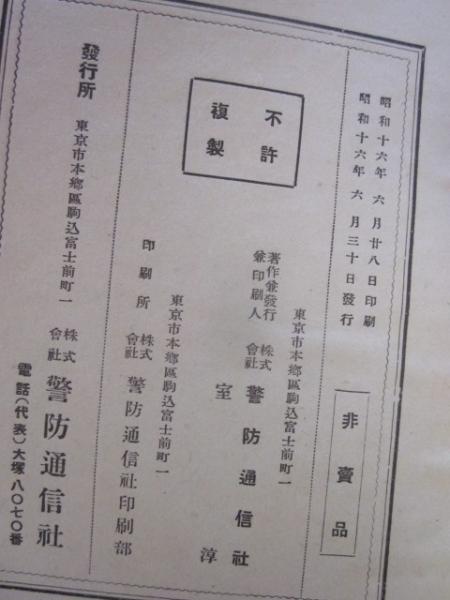 昭和十六年六月廿八日印刷
昭和十六年六月三十日發行
非賣品
不許
複製
東京市本鄉區駒込富士前町一
著作兼發行
兼印刷人
株式
會社
警防通信社
室淳
東京市本鄉區駒込富士前町一
印刷所
株式
會社
警防通信社印刷部
發行所
東京市本鄉區駒込富士前町一
株式
會社
警防通信社
電話(代表)大塚八〇七〇番